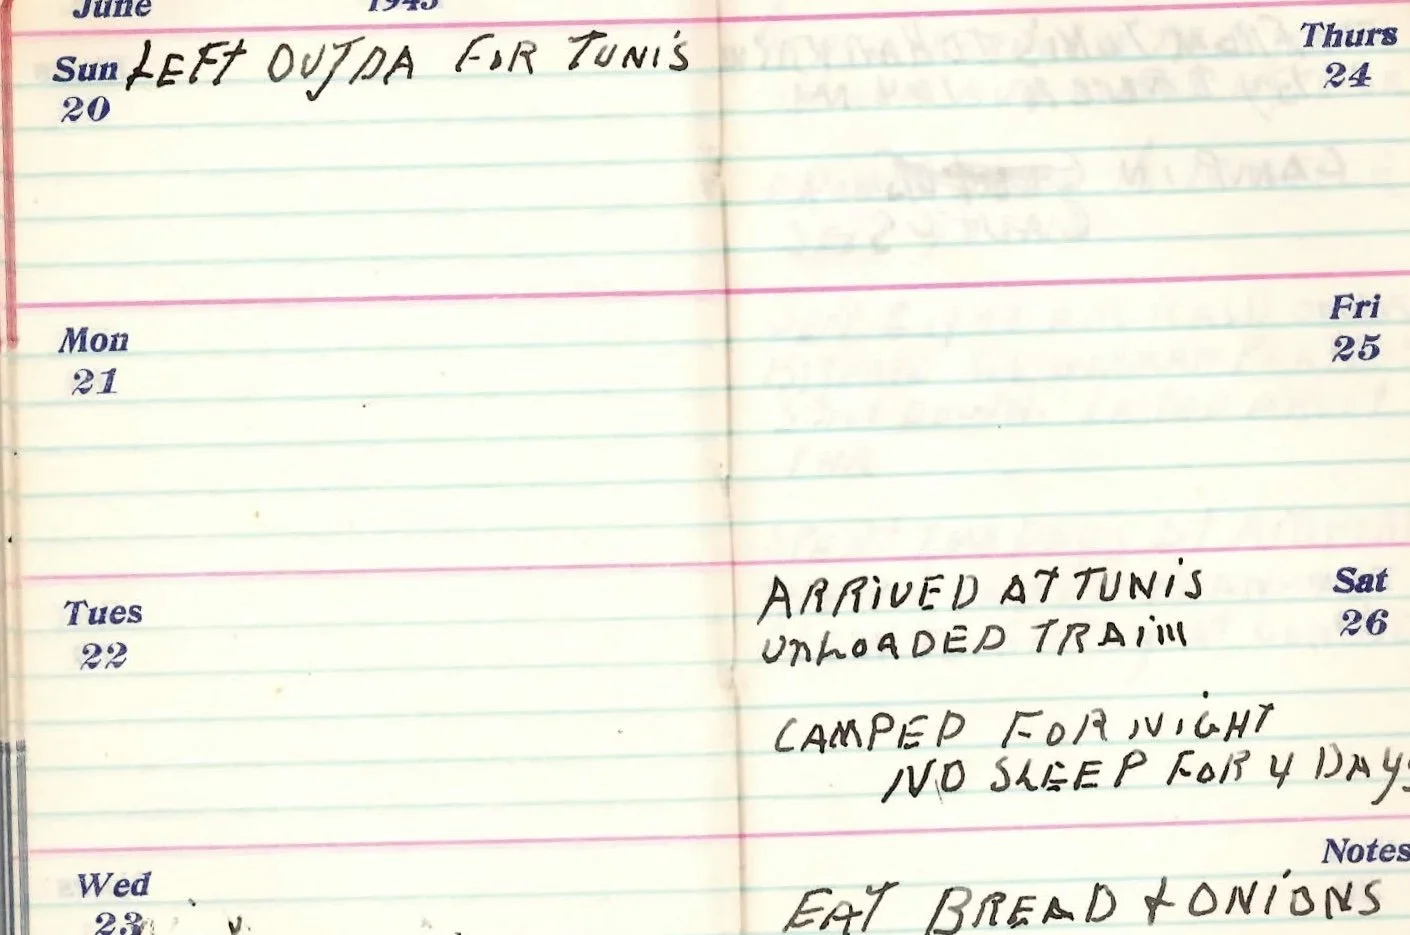 June 1943
Sun LEFT OUJDA FOR TUNIS
20
Mon
21
Tues
22
Wed
23
Thurs
24
Fri
25
ARRIVED AT TUNIS Sat
UNLOADED TRAIN 26
CAMPED FOR NIGHT
NO SLEEP FOR 4 DAYS
Notes
EAT BREAD & ONIONS